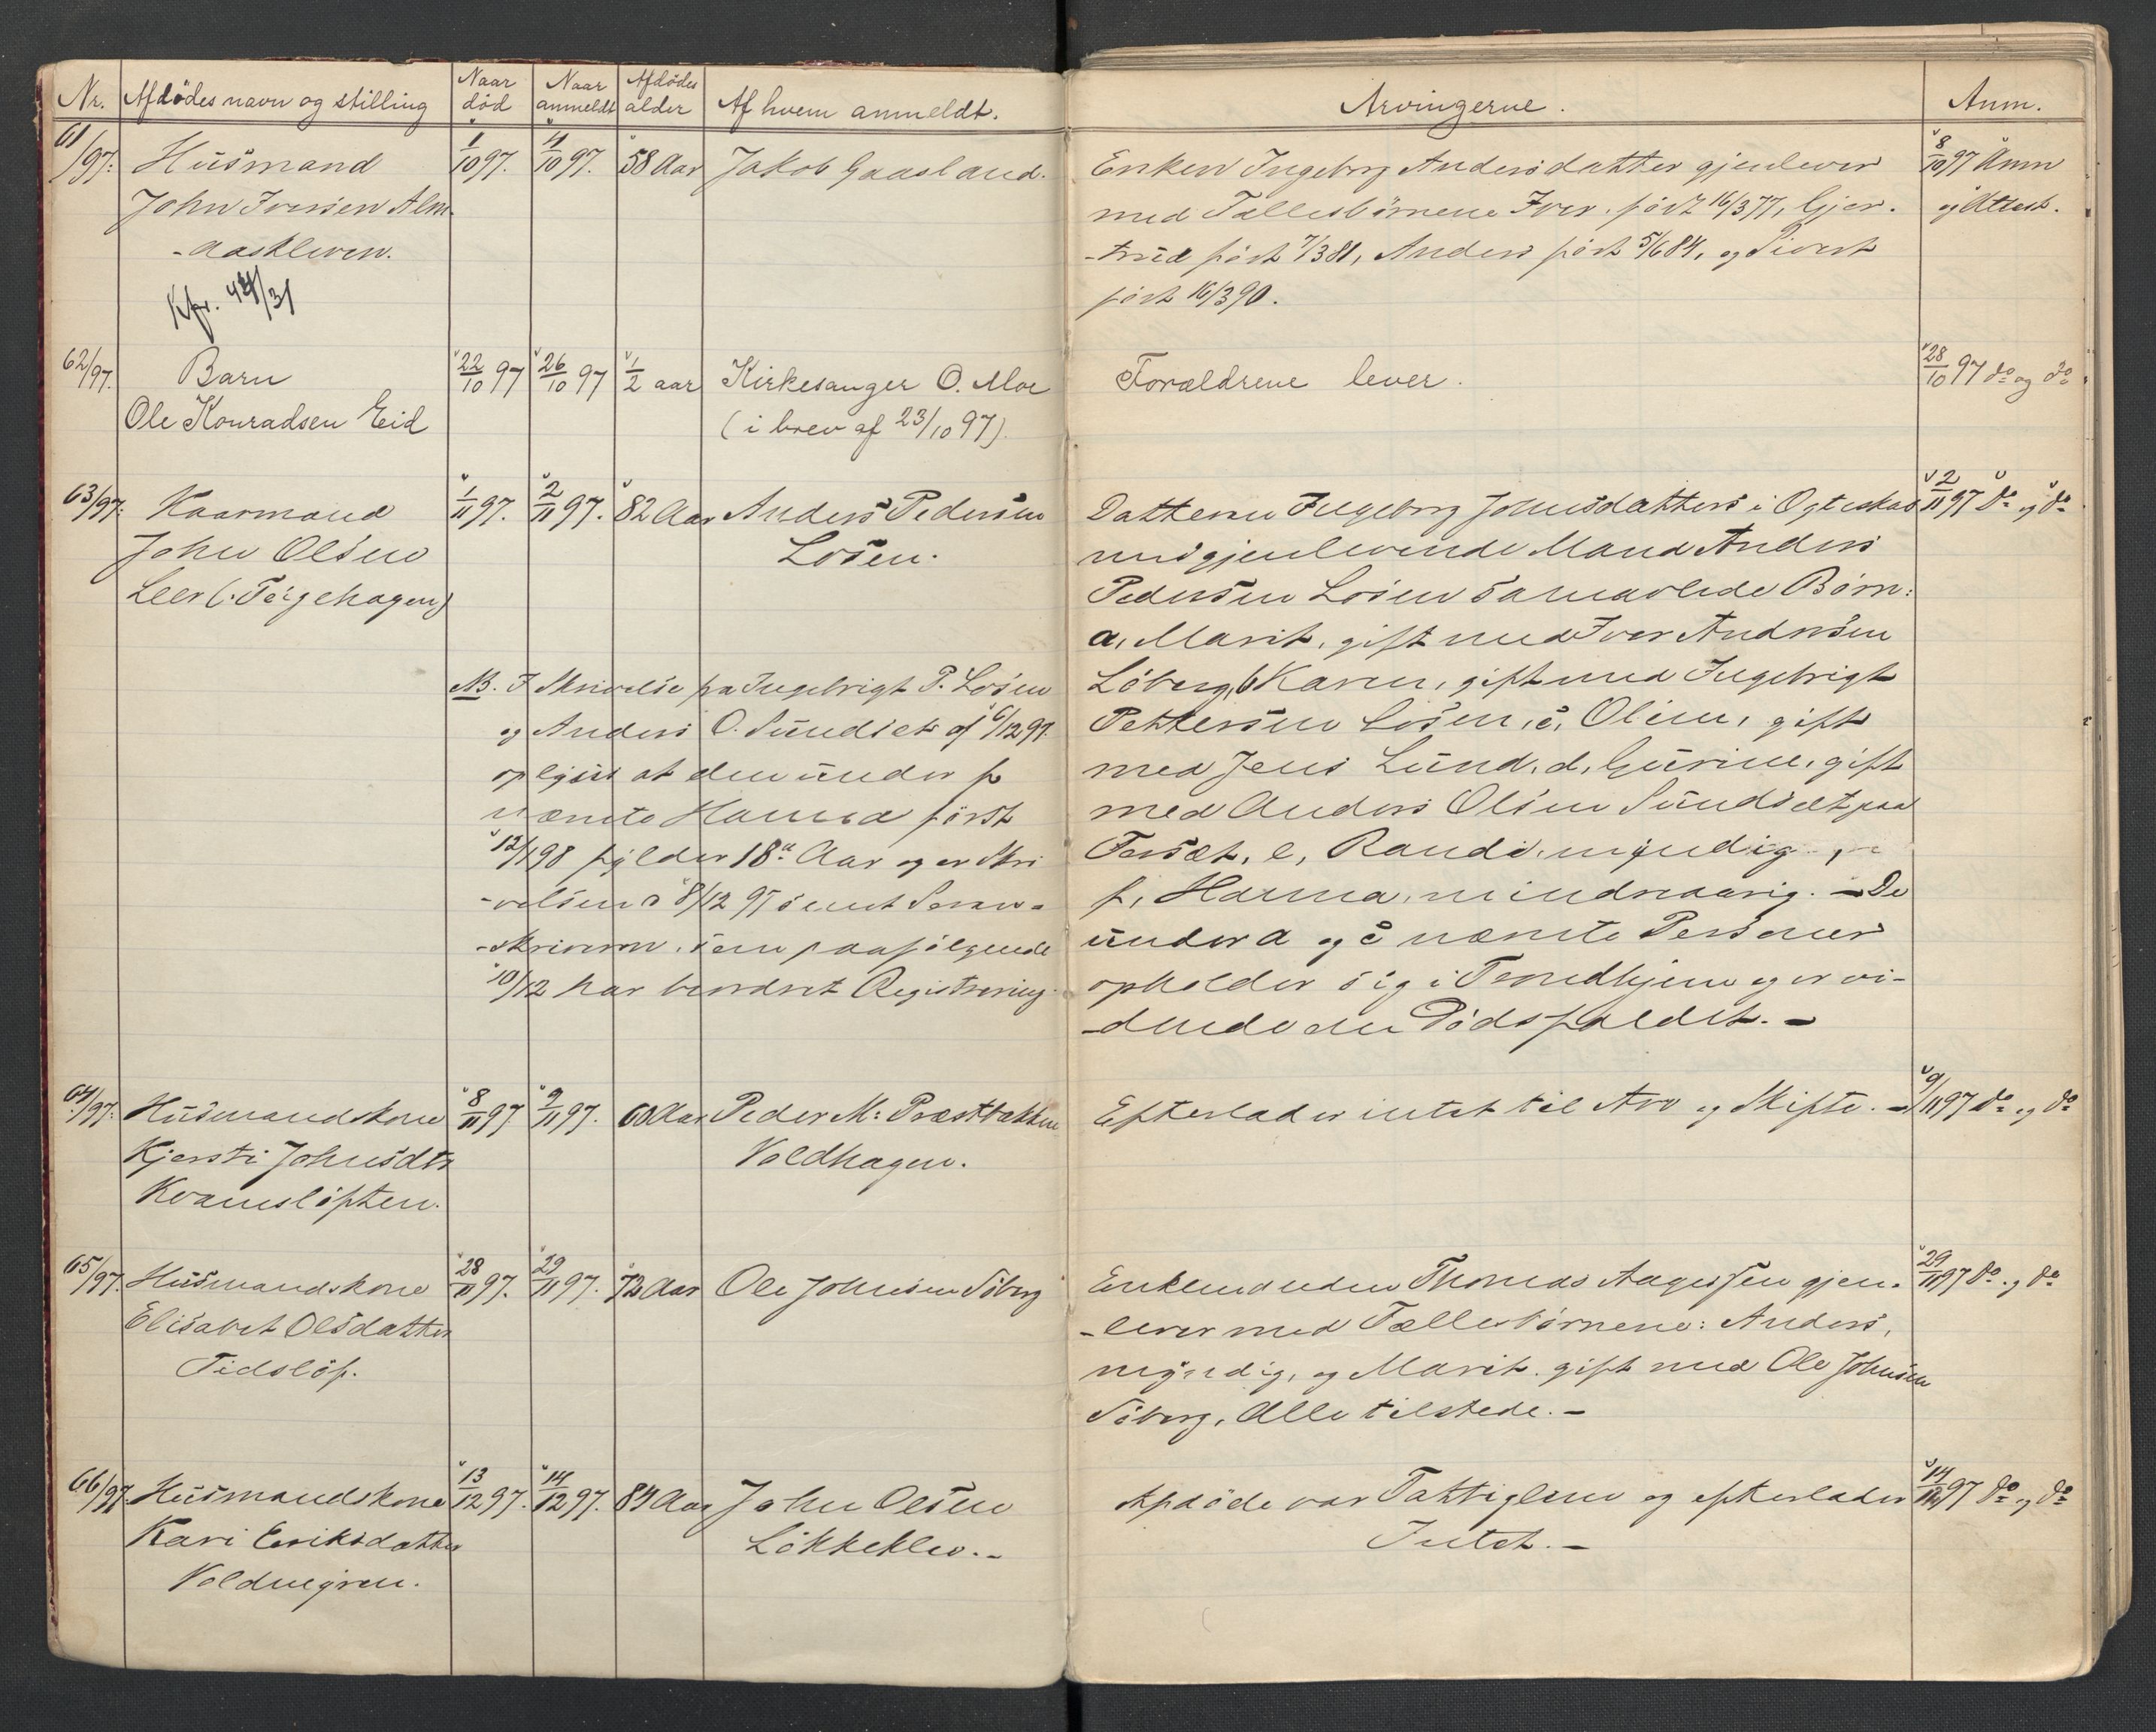 Nr. Afdødes navn og stilling Naar død Naar anmeldt Afdødes alder Af hvem anmeldt. Arvingerne. Anm.
61/97. Husmand 1/10 97. 4/10 97. 58 Aar Jakob Gaasland.
John Iversen Alm-
-aaskleven.
Kfr. 44/31
Enken Ingeborg Andersdatter gjenlever
med Fællesbørnene Iver, født 16/3 77, Gjer-
-trud født 7/3 81, Anders født 5/6 84, og Sivert
født 16/3 90.
8/10 97 Anm
og Attest.
62/97. Barn 22/10 97 26/10 97 1/2 aar Kirkesanger O. Moe
Ole Konradsen Eid (i brev af 23/10 97).
Forældrene lever.
28/10 97 do og do
63/97. Kaarmand 1/11 97. 2/11 97. 82 Aar Anders Pedersen
John Olsen Losen.
Leer (: Teigehagen)
NB. I Skrivelse fra Ingebrigt P. Losen
og Anders O. Sundset af 6/12 97
oplyses at den under f
nævnte Hanna først
12/1 98 fylder 18 Aar og er Skri
-velsen 8/12 97 sendt Soren-
-skriveren, som paafølgende
10/12 har berdret Registrering.
Datteren Ingeborg Johnsdatters i Ægteskab
med gjenlevende Mand Anders
Pedersen Losen sammavlede Børn:
a, Marit, gift med Iver Andersen
Löberg, b, Karen, gift med Ingebrigt
Pettersen Losen, c, Oline, gift
med Jens Lund, d, Gurine, gift
med Anders Olsen Sundset paa
e, Randi, myndig,
f, Hanna, mindreaarig. - De
under a og c nævnte Personer
opholder sig i Trondhjem og er vi-
-dende om Dødsfaldet. -
2/11 97 do og do
64/97. Husmandskone 8/11 97 9/11 97. 60 Aar Peder M: Præsttakken
Kjersti Johnsdtr Voldhagen.
Kvamsløften.
Efterlader intet til Arv og Skifte. -
9/11 97 do og do
65/97. Husmandskone 28/11 97. 29/11 97. 72 Aar Ole Johnsen Söberg
Elisabet Olsdatter
Tidsløf.
Enkemanden Thomas Aagessen gjen-
-lever med Fællesbørnene: Anders,
myndig, og Marit, gift med Ole Johnsen
Söberg, Alle tilstede. -
29/11 97 do og do
66/97. Husmandskone 13/12 97. 14/12 97. 84 Aar John Olsen
Kari Eriksdatter Løkkeklev. -
Voldmegren.
Afdøde var Fattiglem og efterlader
Intet. -
14/12 97 do og do